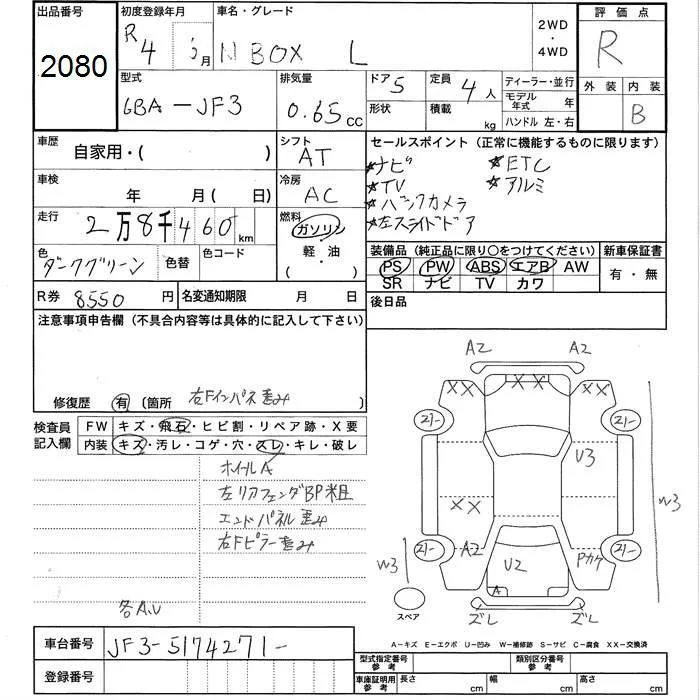 出品番号 初度登録年月 車名・グレード 評価点
2080 R4 5月 N BOX L 2WD・4WD R
型式 排気量 ドア 5 定員 4人 ディーラー・並行 外装 内装
6BA-JF3 0.65cc 形状 積載 kg モデル年式 年 B
ハンドル 左・右
車歴 シフト セールスポイント (正常に機能するものに限ります)
自家用・( ) AT ★ナビ ★ETC
車検 冷房 ★TV ★アルミ
年 月( 日) AC ★バックカメラ
走行 燃料 ★左スライドドア
2万8千460km ガソリン
軽・油
・( )
色 色替 色コード 装備品 (純正品に限り○をつけてください) 新車保証書
ダークグリーン PS PW ABS エアB AW 有・無
SR ナビ TV カワ
R券 8550円 名変通知期限 月 日 後日品
注意事項申告欄 (不具合内容等は具体的に記入して下さい)
修復歴 有 (箇所 右Fインパネ歪み )
検査員記入欄 FW キズ・飛石・ヒビ割・リペア跡・X要
内装 キズ・汚レ・コゲ・穴・スレ・キレ・破レ
ホイールA
左リアフェンダBP粗
エンドパネル歪み
右Fピラー歪み
各A,U
A2 A2
XX XX XX
21- 21-
U3
W3
XX
21- A2 U2 Pカケ 21-
W3
A
スペア ズレ ズレ
A-キズ E-エクボ U-凹み W-補修跡 S-サビ C-腐食 XX-交換済
車台番号 JF3-5174271-
登録番号
型式指定番号参考 類別区分番号参考
車庫証明用参考 長さ cm 幅 cm 高さ cm